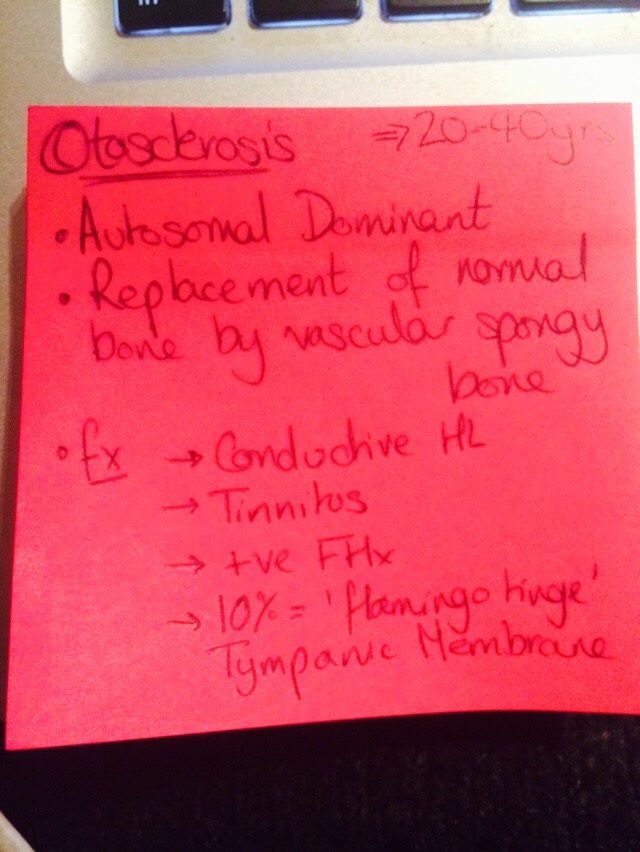 Otosclerosis ⇒ 20-40yrs
• Autosomal Dominant
• Replacement of normal
bone by vascular spongy
bone
• Ex → Conductive HL
→ Tinnitus
→ +ve FHx
→ 10% = 'flamingo tinge'
Tympanic Membrane